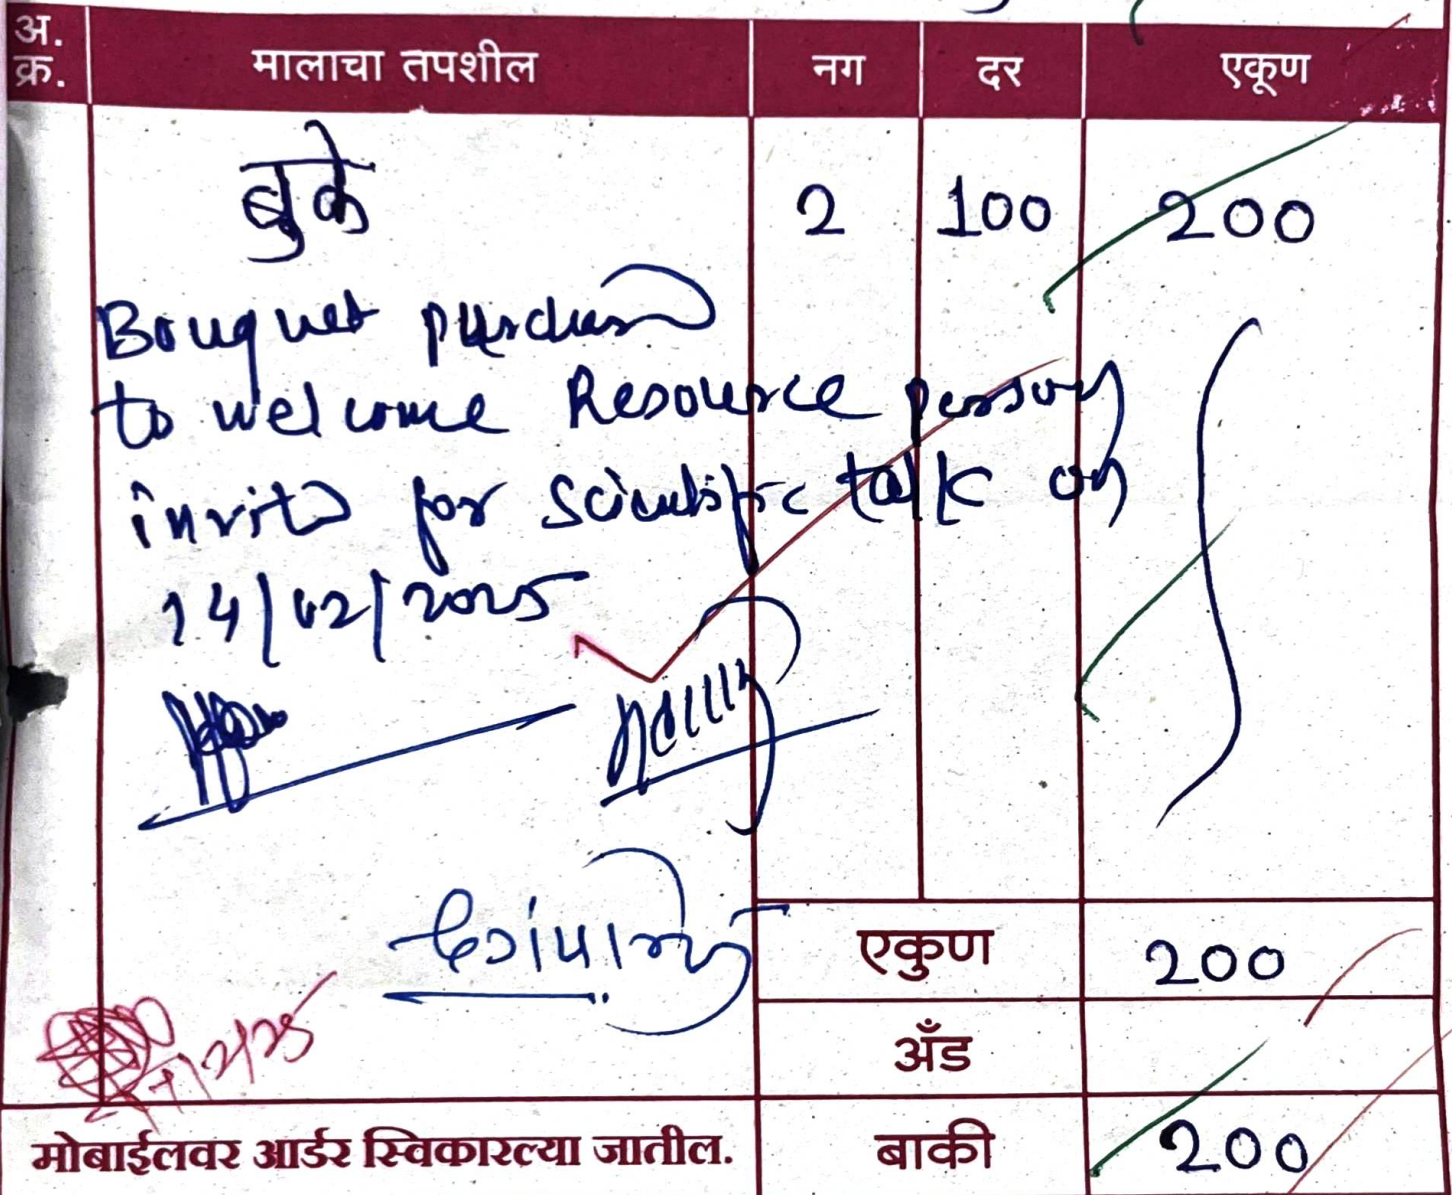 अ. क्र. मालाचा तपशील नग दर एकूण
बुके 2 100 200
Bouquet purchased
to welcome Resource person
invited for scientific talk on
14/02/2025
एकुण 200
अँड
मोबाईलवर आर्डर स्विकारल्या जातील. बाकी 200